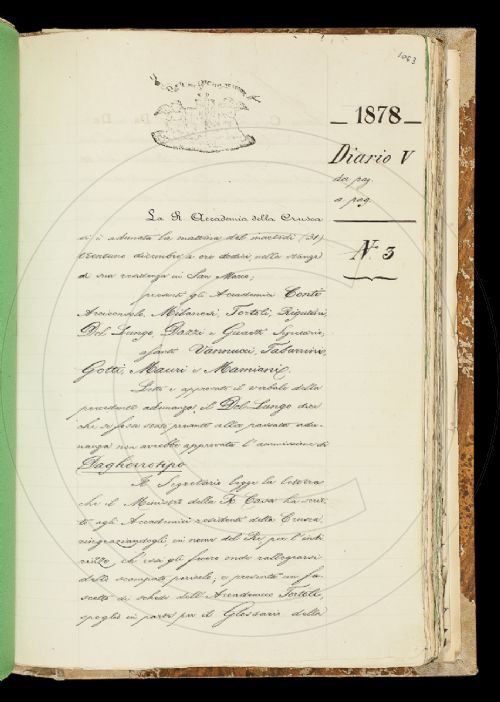 1063
1878
Diario V
da pag.
a pag.
N. 3
La R. Accademia della Crusca
si è adunata la mattina del martedì (31)
trentuno dicembre a ore dodici, nelle stanze
di sua residenza in San Marco;
presenti gli Accademici Conti
Arciconsolo, Milanesi, Tortoli, Rigutini,
Del Lungo, Dazzi e Guasti Segretario;
assenti Vannucci, Tabarrini,
Gotti, Mauri e Mamiani.
Letto e approvato il verbale della
precedente adunanza, il Del Lungo dice
che se fosse stato presente alla passata adu-
nanza non avrebbe approvata l'ammissione di
Dagherrotipo.
Il Segretario legge la lettera
che il Ministro della R. Casa ha scrit-
to agli Accademici residenti della Crusca
ringraziandogli in nome del Re, per l'indi-
rizzo, che essi gli fecero onde rallegrarsi
dello scampato pericolo; e presenta un fa-
scetto di schede dell'Accademico Tortoli,
spogli in parte per il Glossario della